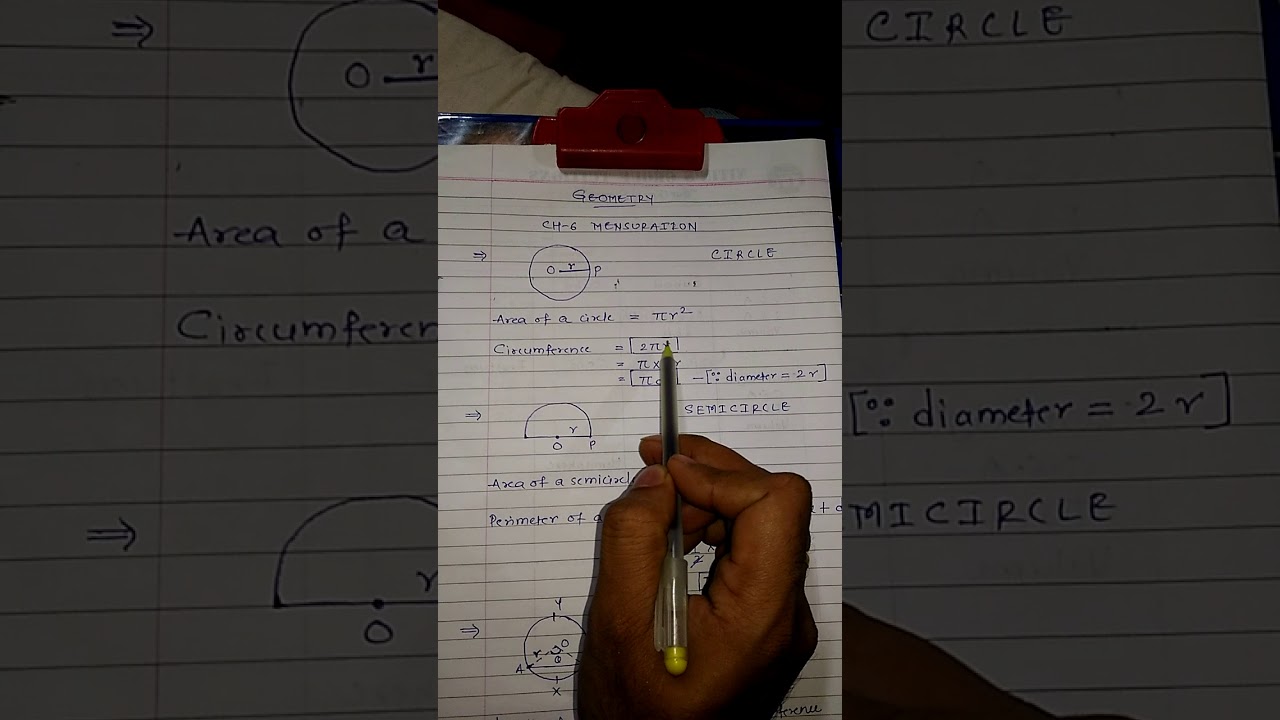 GEOMETRY
CH-6 MENSURATION
⇒ O r P CIRCLE
Area of a circle = πr²
Circumference = [2πr]
= π×
= [πd] - [∵ diameter = 2r]
⇒ O r P SEMICIRCLE
Area of a semicircle
Perimeter of a
⇒ Y
r O
θ
A
X